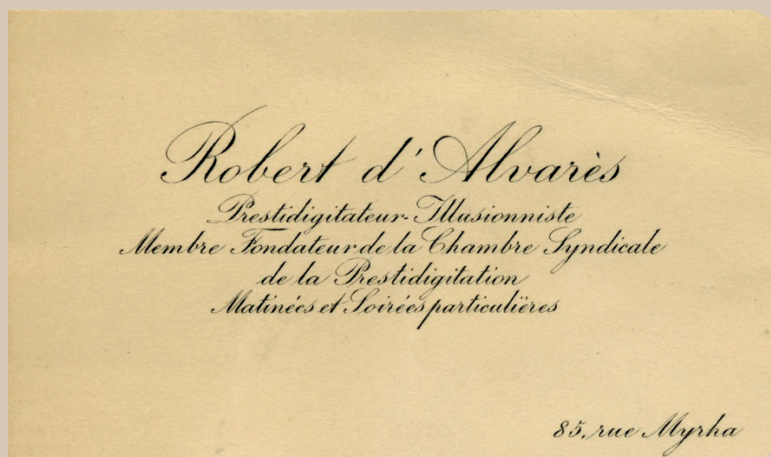 Robert d'Alvarès
Prestidigitateur-Illusionniste
Membre Fondateur de la Chambre Syndicale
de la Prestidigitation
Matinées et Soirées particulières
85, rue Myrha